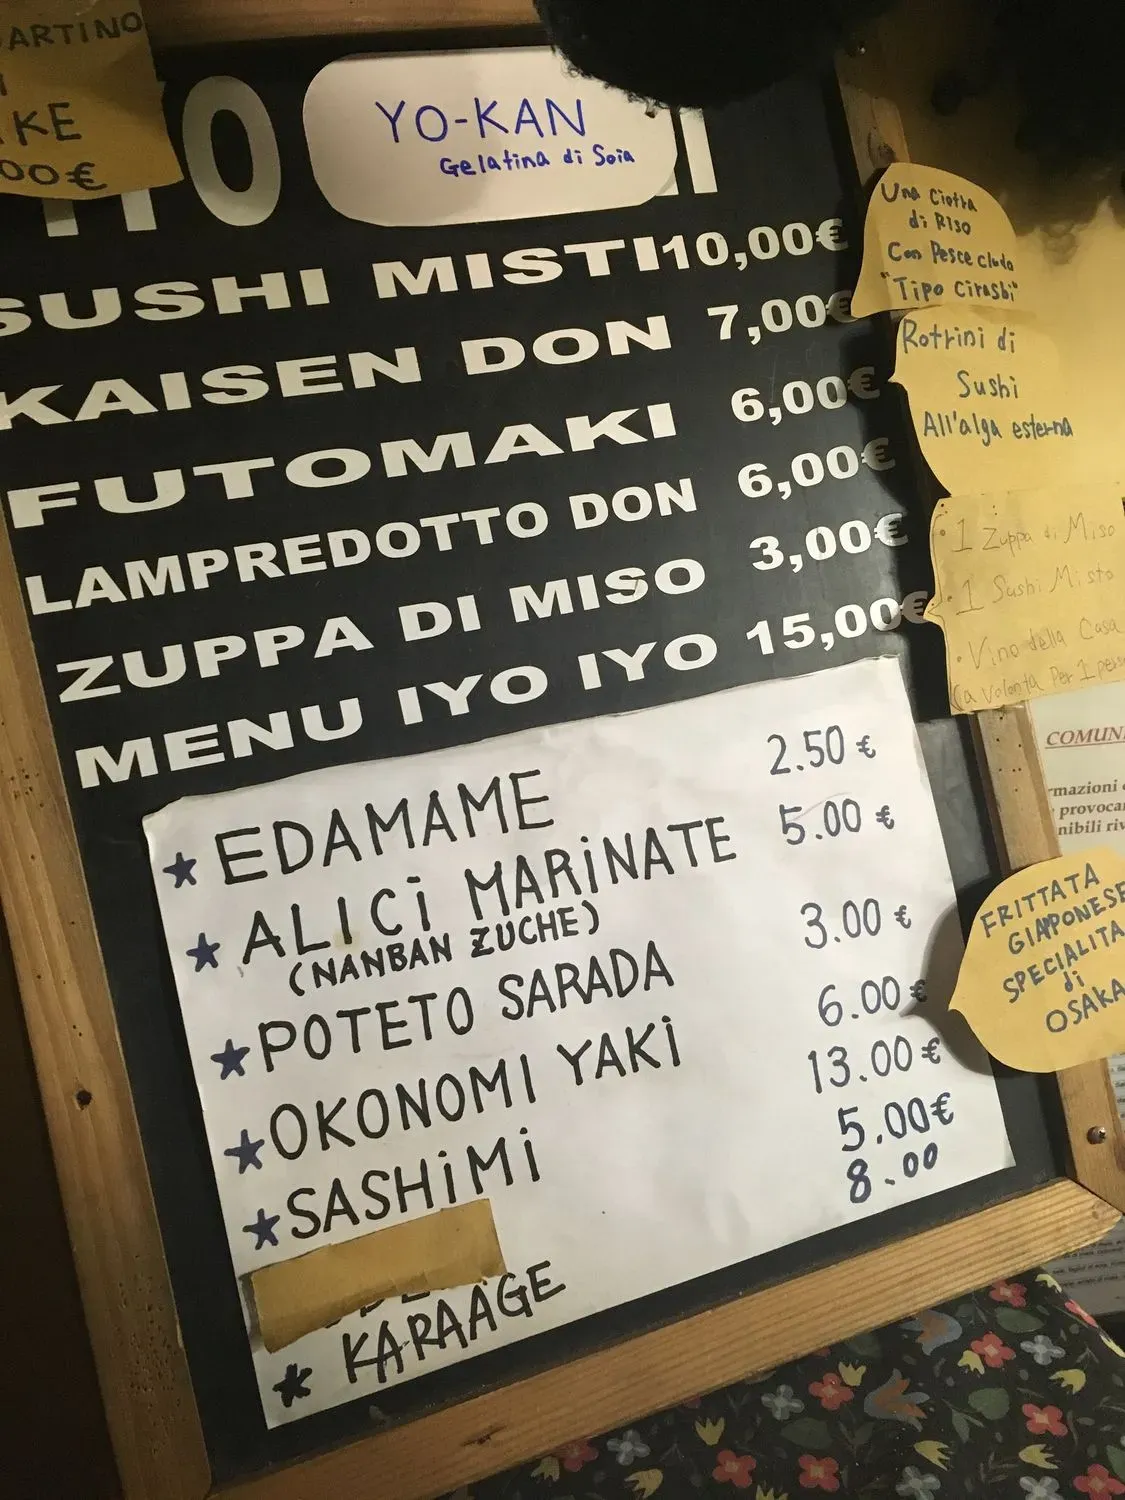 ARTINO
IKE
00€
YO-KAN
Gelatina di Soia
SUSHI MISTI 10,00€
KAISEN DON 7,00€
FUTOMAKI 6,00€
LAMPREDOTTO DON 6,00€
ZUPPA DI MISO 3,00€
MENU IYO IYO 15,00€
Una Ciotra
di Riso
Con Pesce cludo
"Tipo Cirashi"
Rotrini di
Sushi
All'alga esterna
• 1 Zuppa di Miso
• 1 Sushi Misto
• Vino della Casa
(a Volonta Per 1 pers
COMUN
rmazioni
provocar
nibili riv
★ EDAMAME 2.50 €
★ ALICi MARiNATE 5.00 €
(NANBAN ZUCHE)
★ POTETO SARADA 3.00 €
★ OKONOMI YAKi 6.00 €
★ SASHiMi 13.00 €
5.00€
★ KARAAGE 8.00
FRITTATA
GIAPPONESE
SPECIALITA
di
OSAKA